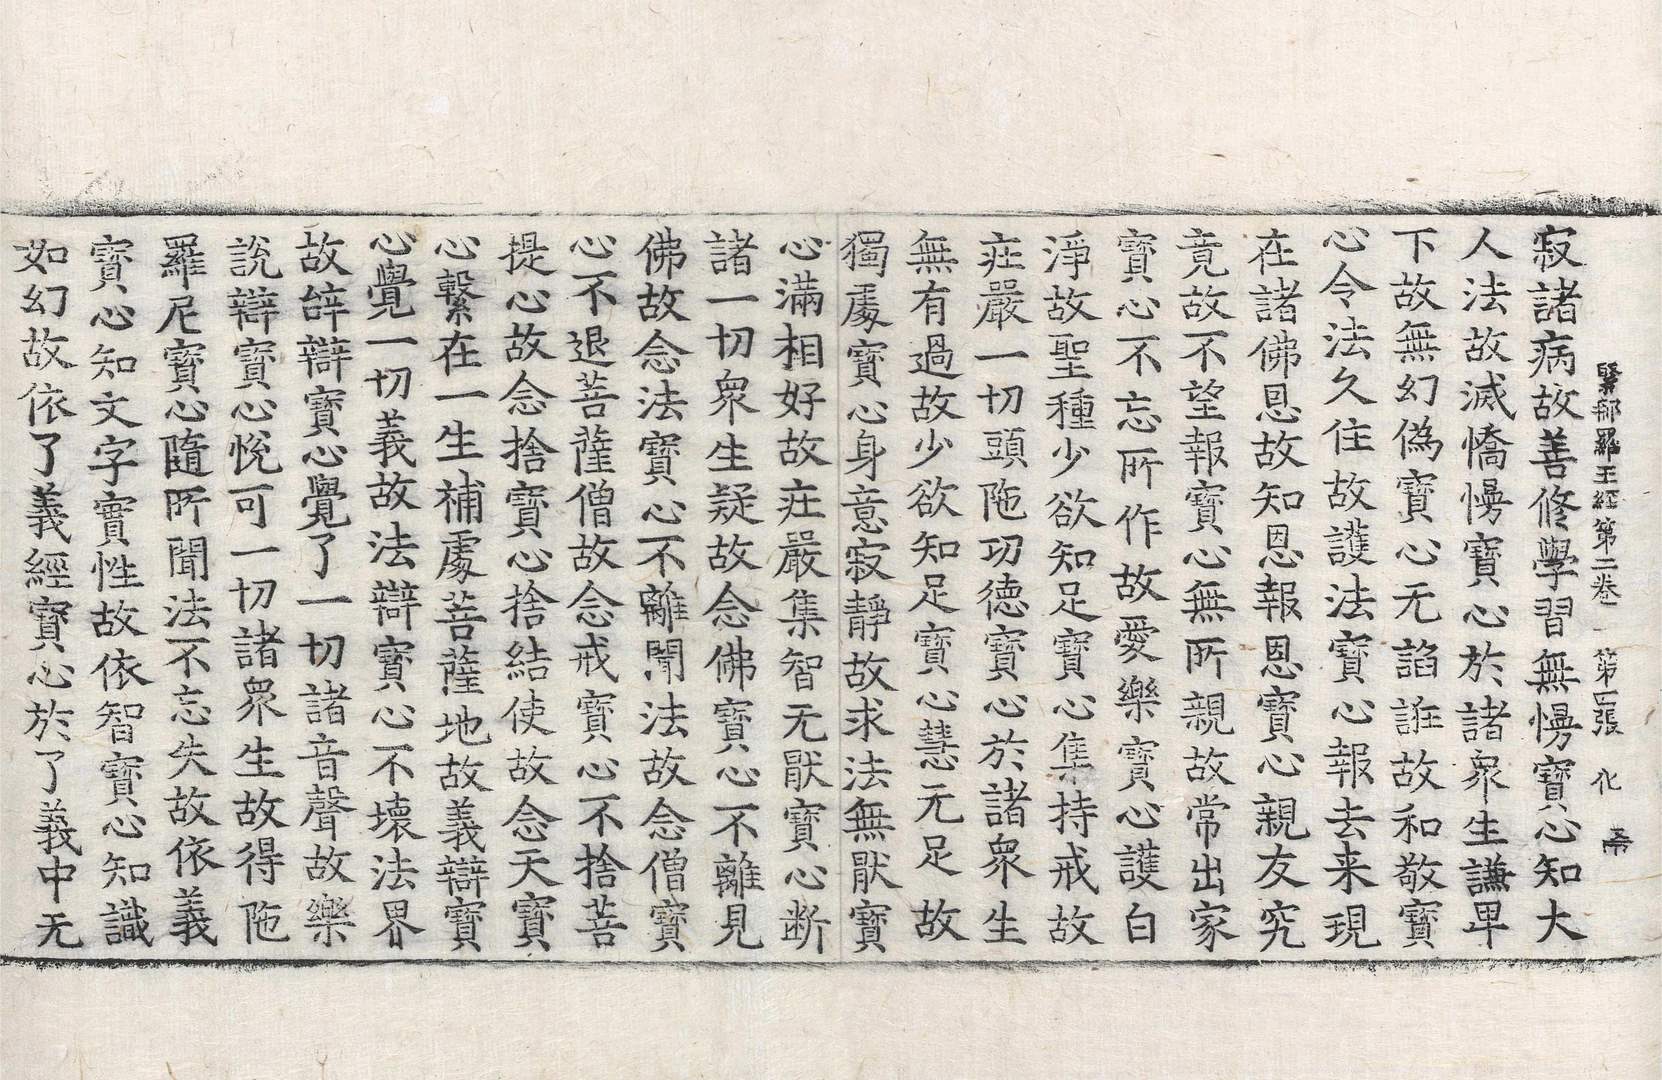 緊那羅王經第二卷 第二張 化 㡭
寂諸病故善修學習無慢寶心知大
人法故滅憍慢寶心於諸衆生謙卑
下故無幻僞寶心无諂誑故和敬寶
心令法久住故護法寶心報去来現
在諸佛恩故知恩報恩寶心親友究
竟故不望報寶心無所親故常出家
寶心不忘所作故愛樂寶心護白
淨故聖種少欲知足寶心集持戒故
莊嚴一切頭陁功德寶心於諸衆生
無有過故少欲知足寶心慧无足故
獨處寶心身意寂靜故求法無猒寶
心滿相好故莊嚴集智无猒寶心断
諸一切衆生疑故念佛寶心不離見
佛故念法寶心不離聞法故念僧寶
心不退菩薩僧故念戒寶心不捨菩
提心故念捨寶心捨結使故念天寶
心繫在一生補處菩薩地故義辯寶
心覺一切義故法辯寶心不壞法界
故辞辯寶心覺了一切諸音聲故樂
說辯寶心悅可一切諸衆生故得陁
羅尼寶心隨所聞法不忘失故依義
寶心知文字實性故依智寶心知識
如幻故依了義經寶心於了義中无